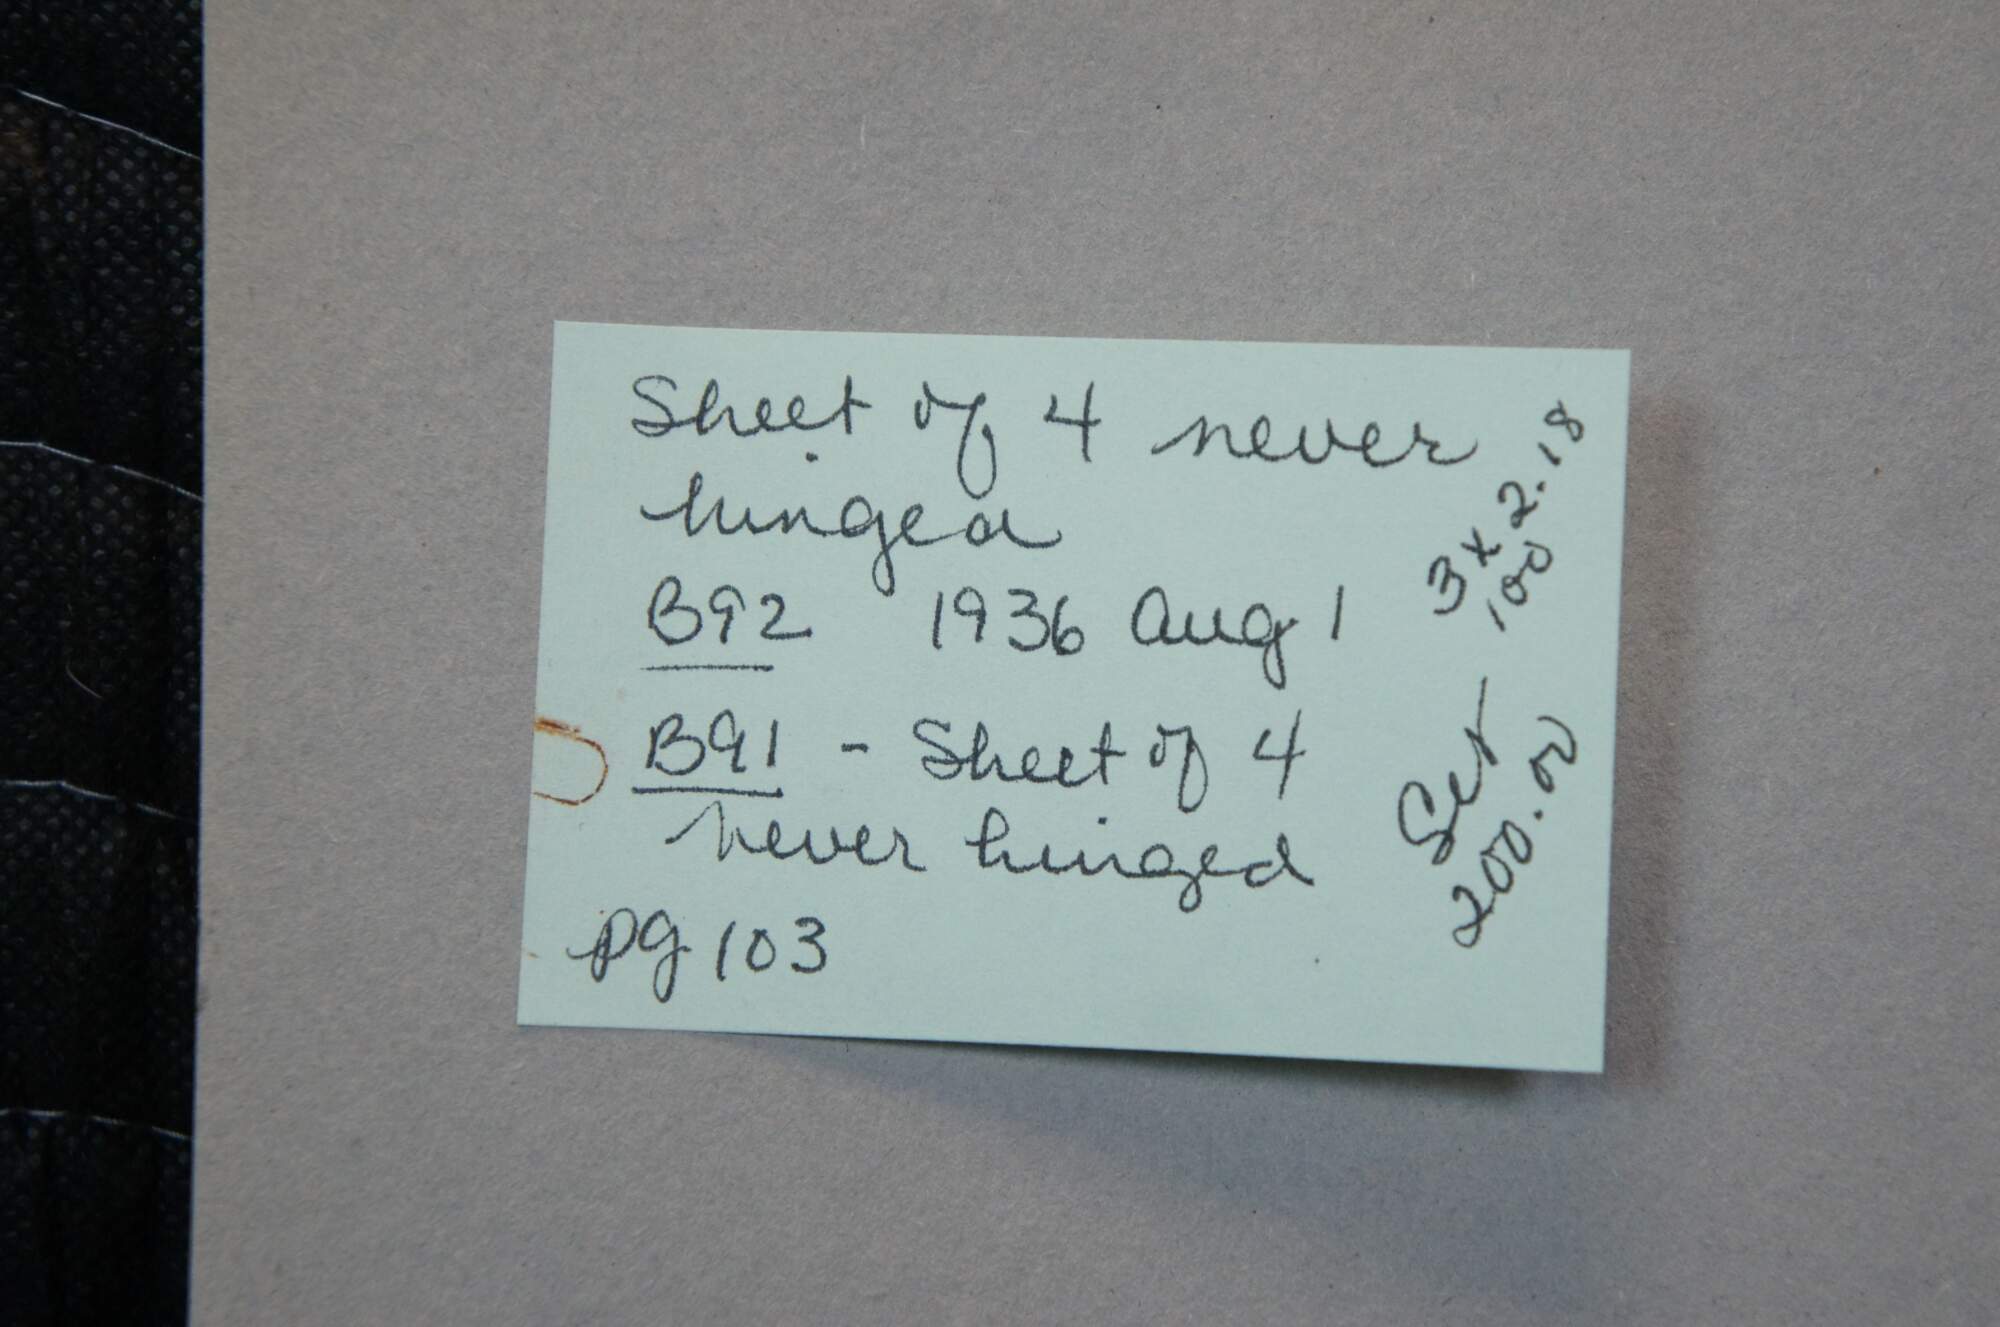 Sheet of 4 never
hinged
B92 1936 Aug 1
B91 - Sheet of 4
never hinged
pg 103
3 x 2.18
100
Set
200.00